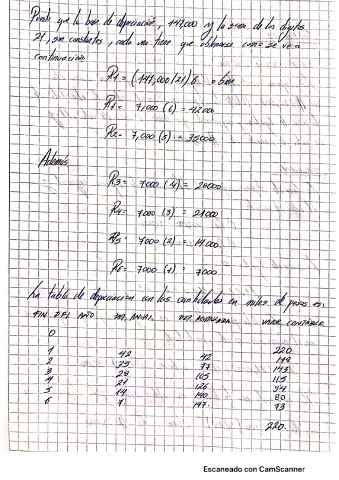 Puesto que la base de depreciación, 147,000 y la suma de los dígitos
21, son constantes, cada una tiene que obtenerse como se ve a
continuación
R1 = (147,000/21) 6
R1 = 7,000 (6) = 42000
R2 = 7,000 (5) = 35000
Además
R3 = 7000 (4) = 28000
R4 = 7000 (3) = 21000
R5 = 7000 (2) = 14000
R6 = 7000 (1) = 7000
La tabla de depreciación con las cantidades en miles de pesos es:
FIN DEL AÑO DEP. ANUAL DEP. ACUMULADA VALOR CONTABLE
0
220
1 42 42 178
2 35 77 143
3 28 105 115
4 21 126 94
5 14 140 80
6 7 147 73
220
Escaneado con CamScanner